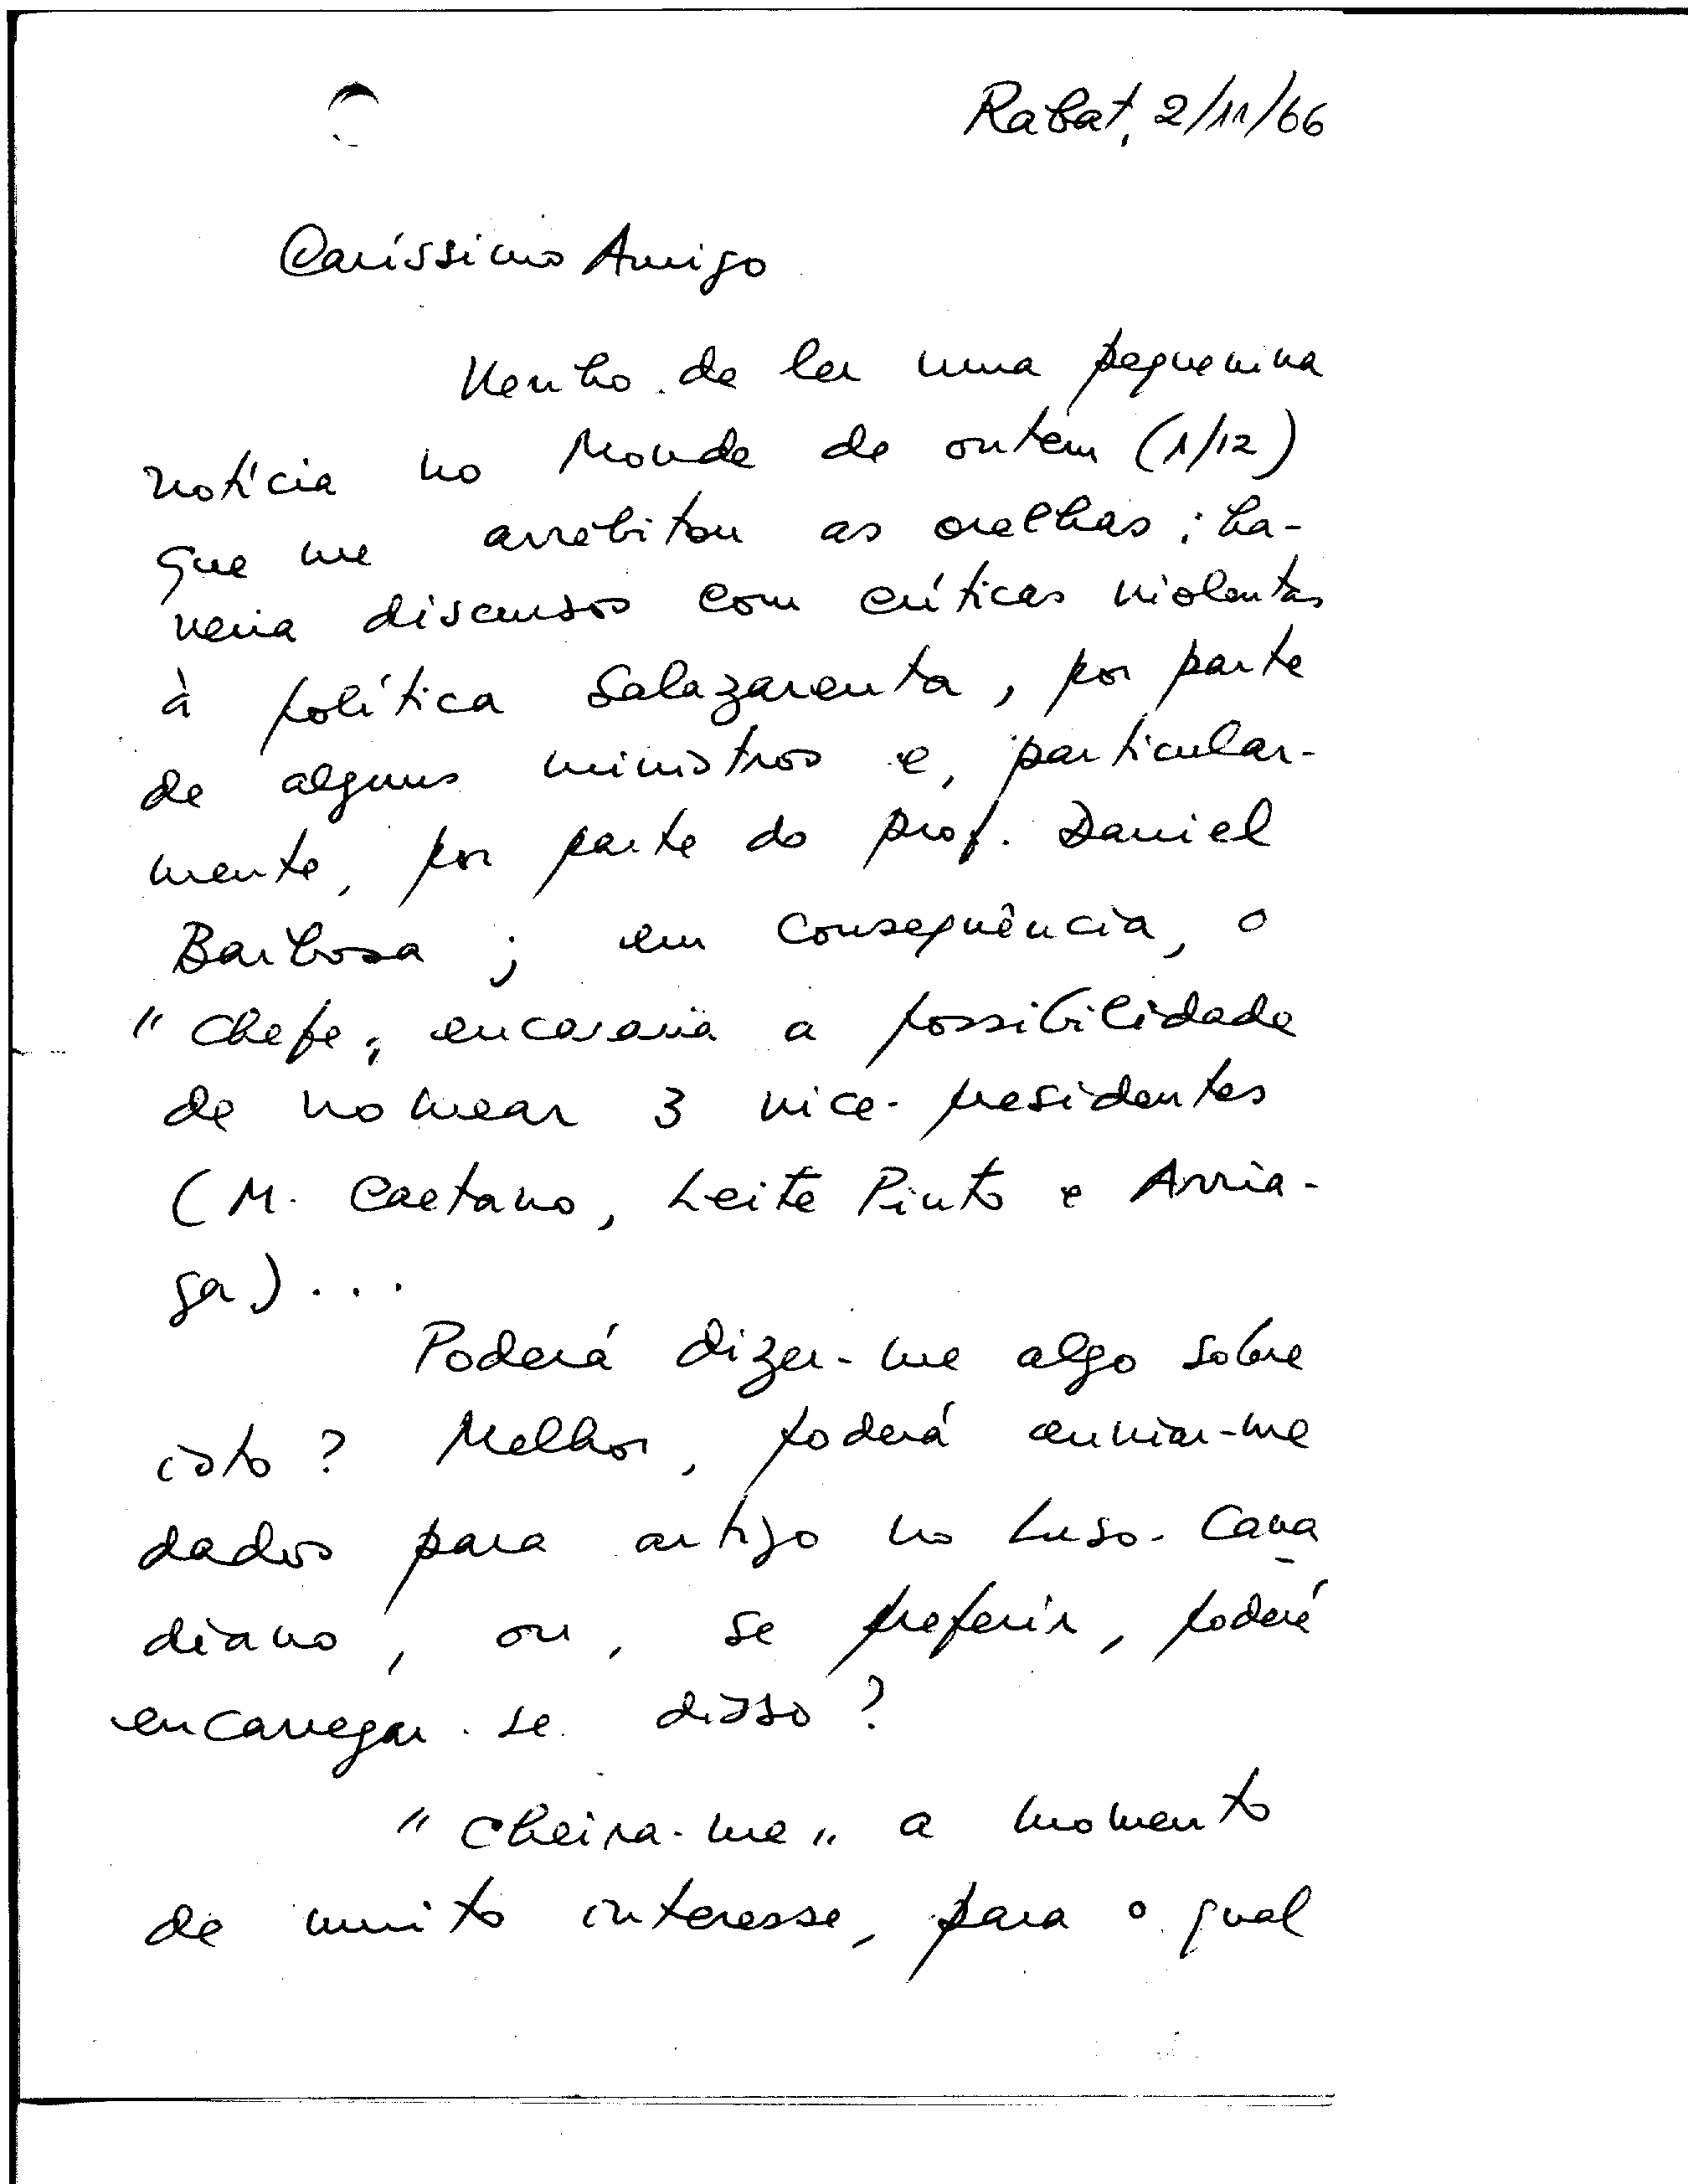 Rabat, 2/11/66
Caríssimo Amigo
Venho de ler uma pequenina
notícia no Monde de ontem (1/12)
que me arrebitou as orelhas: ha-
veria discursos com críticas violentas
à política Salazarenta, por parte
de alguns ministros e, particular-
mente, por parte do prof. Daniel
Barbosa; em consequência, o
"Chefe" encararia a possibilidade
de nomear 3 vice-presidentes
(M. Caetano, Leite Pinto e Arria-
ga)...
Poderá dizer-me algo sobre
isto? Melhor, poderá enviar-me
dados para artigo no Luso-Cana
diano, ou, se preferir, poderá
encarregar-se disso?
"Cheira-me" a momento
de muito interesse, para o qual